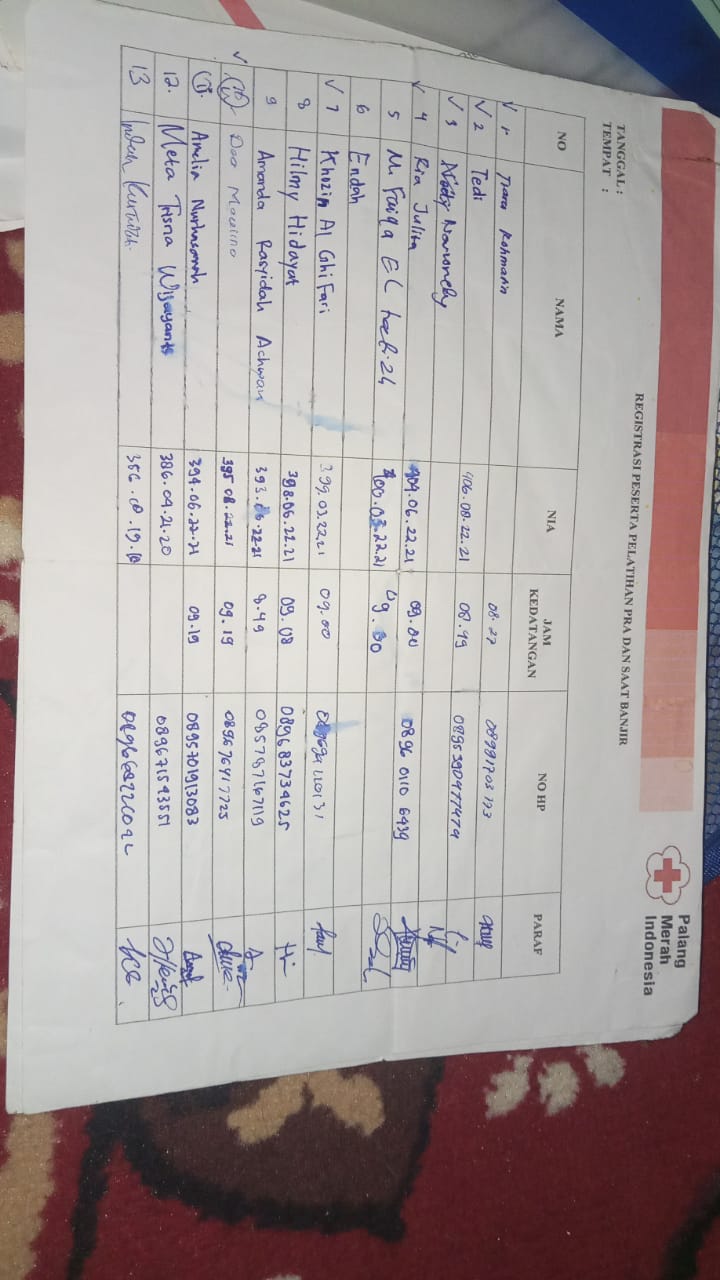 Palang
Merah
Indonesia
REGISTRASI PESERTA PELATIHAN PRA DAN SAAT BANJIR
TANGGAL :
TEMPAT :
NO NAMA NIA JAM KEDATANGAN NO HP PARAF
1 08.27
2 Tedi 406.08.22.21 08.49 0895390477474
3
4 Ria Julita 404.06.22.21 09.00 0896 0110 6439
5 M. Faiqa EL 400.03.22.21
6 Endah
7 Khozin Al Ghifari 399.03.22.21 09.00
8 Hilmy Hidayat 398.06.22.21 09.08 089683734625
9 Amanda Rasyidah Achwan 393.06.22.21 8.49 085787167119
10 395 08.22.21 09.19 089676417725
11. Amelia Nurhasanah 394.06.22.21 09.19 0895701913083
12. Meta Trisna Wijayanti 386.04.21.20 089671543551
13